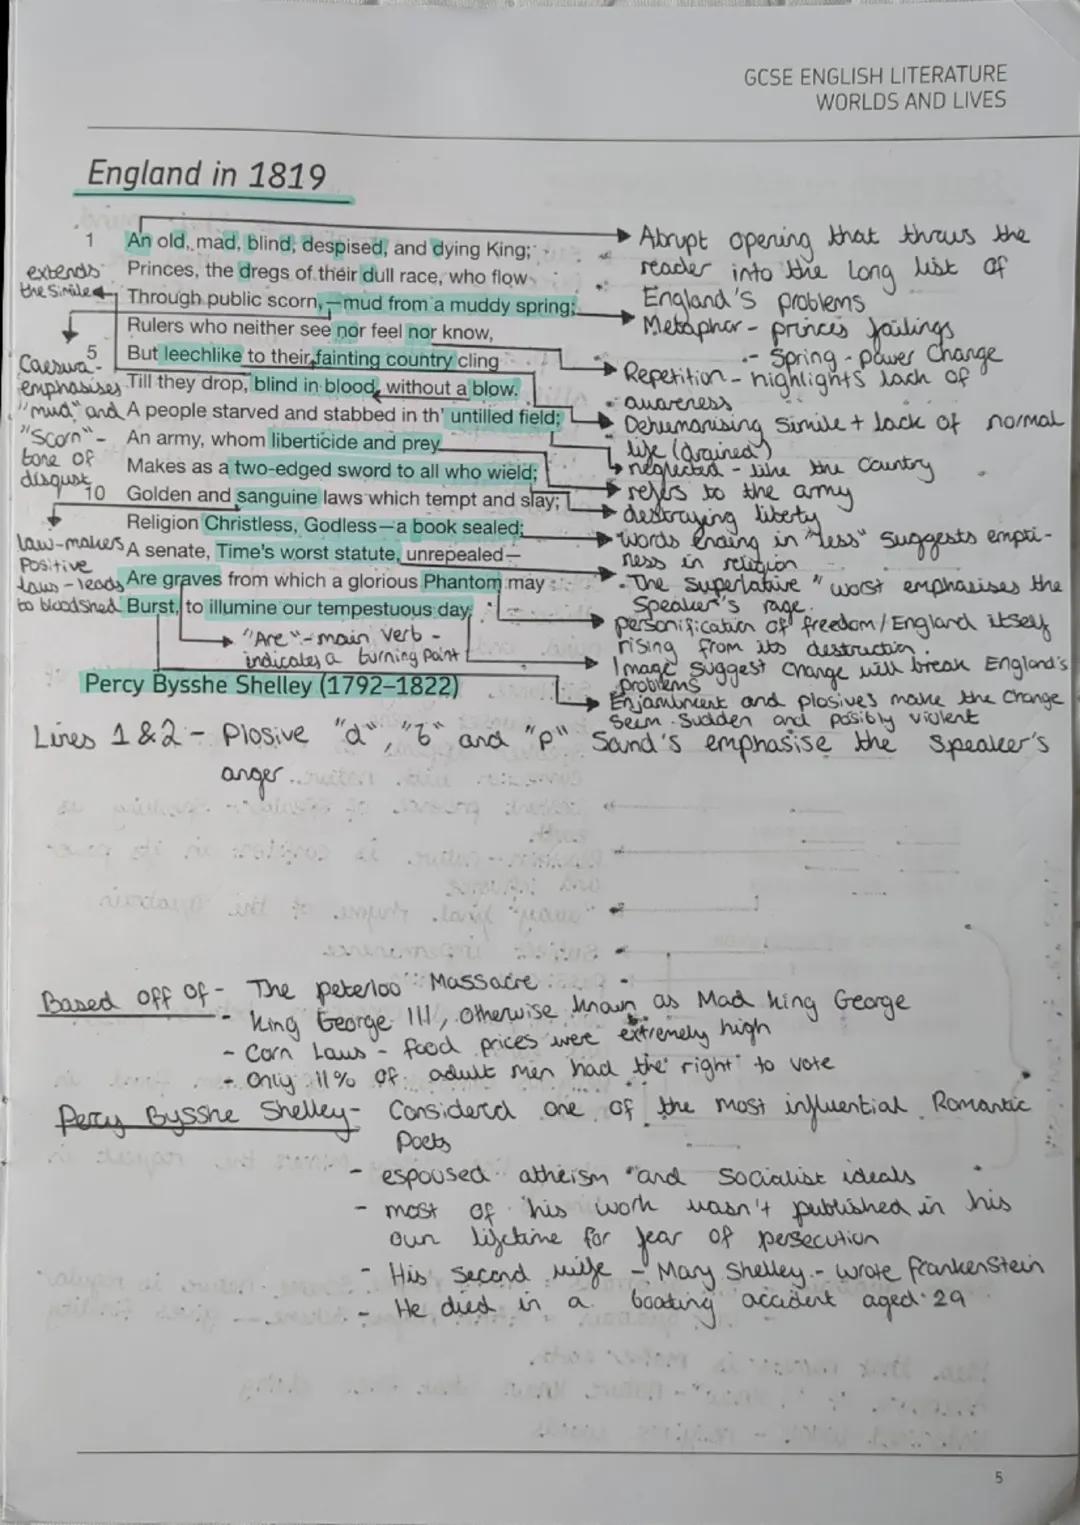 GCSE ENGLISH LITERATURE
WORLDS AND LIVES
England in 1819
1 An old, mad, blind, despised, and dying King;
Princes, the dregs of their dull race, who flow
Through public scorn,—mud from a muddy spring;
Rulers who neither see nor feel nor know,
5 But leechlike to their fainting country cling
Till they drop, blind in blood, without a blow.
A people starved and stabbed in th' untilled field;
An army, whom liberticide and prey
Makes as a two-edged sword to all who wield;
10 Golden and sanguine laws which tempt and slay;
Religion Christless, Godless—a book sealed;
A senate, Time's worst statute, unrepealed—
Are graves from which a glorious Phantom may
Burst, to illumine our tempestuous day.
Percy Bysshe Shelley (1792–1822)
extends
the Simile
Caesura-
emphasises
"mud" and
"Scorn"-
tone of
disgust
law-makers
Positive
laws - leads
to bloodshed
"Are" - main verb -
indicates a turning point
Abrupt opening that throws the
reader into the long list of
England's problems
Metaphor - princes failings
- Spring - power change
Repetition - highlights lack of
awareness
Dehumanising Simile + lack of normal
life (drained)
neglected - like the Country
refers to the army
destroying liberty
words ending in "less" suggests empti-
ness in religion
The superlative "worst emphasises the
Speaker's rage.
personification of freedom/England itself
rising from its destruction.
Image suggest change will break England's
problems
Enjambment and plosives make the change
seem sudden and possibly violent
Lines 1 & 2 - Plosive "d", "b" and "p" Sand's emphasise the Speaker's
anger
Based off of - The peterloo Massacre
- King George III, otherwise known as Mad King George
- Corn Laws - food prices were extremely high
- Only 11% of adult men had the right to vote
Percy Bysshe Shelley- Considered one of the most influential Romantic
Poets
- espoused atheism and Socialist ideals
- most of his work wasn't published in his
own lifetime for fear of persecution
- His second wife - Mary Shelley - wrote frankenstein
- He died in a boating accident aged 29
5